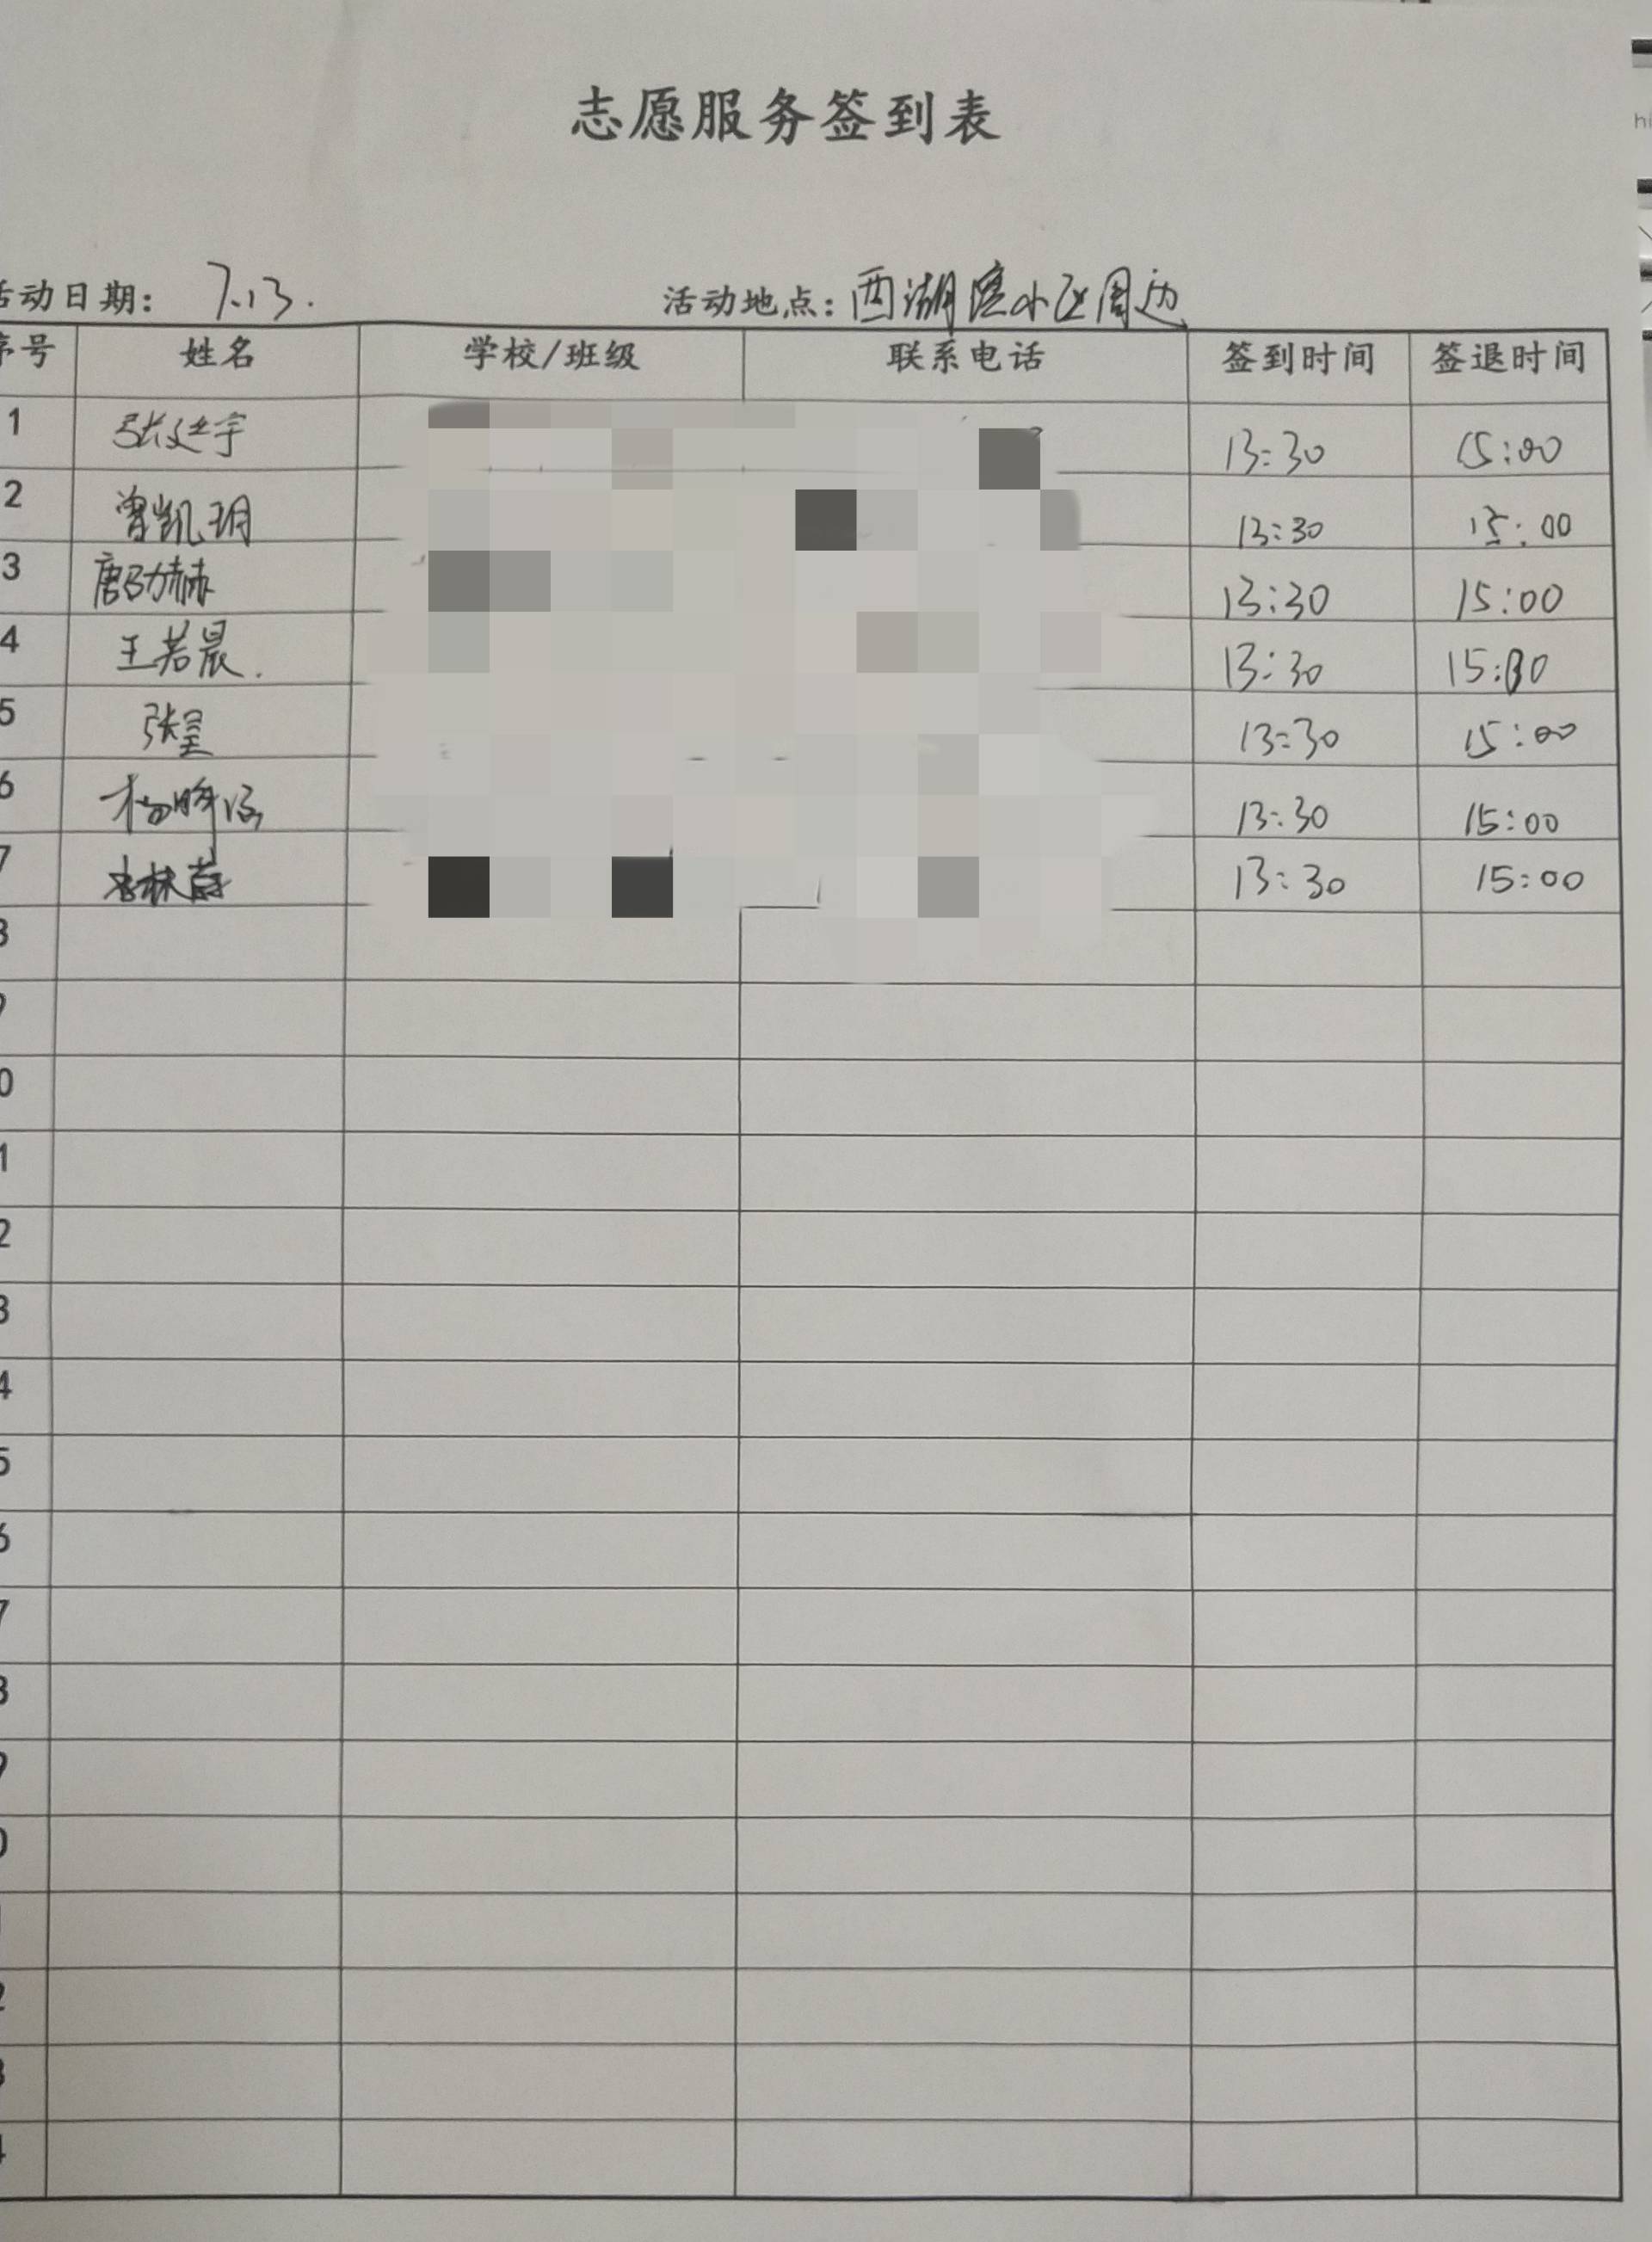 志愿服务签到表
活动日期: 7.13. 活动地点: 西湖湾小区周边
序号 姓名 学校/班级 联系电话 签到时间 签退时间
1 张廷宇 13:30 15:00
2 曾凯玥 13:30 15:00
3 唐劭赫 13:30 15:00
4 王若晨. 13:30 15:00
5 张呈 13:30 15:00
6 13:30 15:00
7 李林蔚 13:30 15:00
8
9
0
1
2
3
4
5
6
7
8
9
0
1
2
3
4